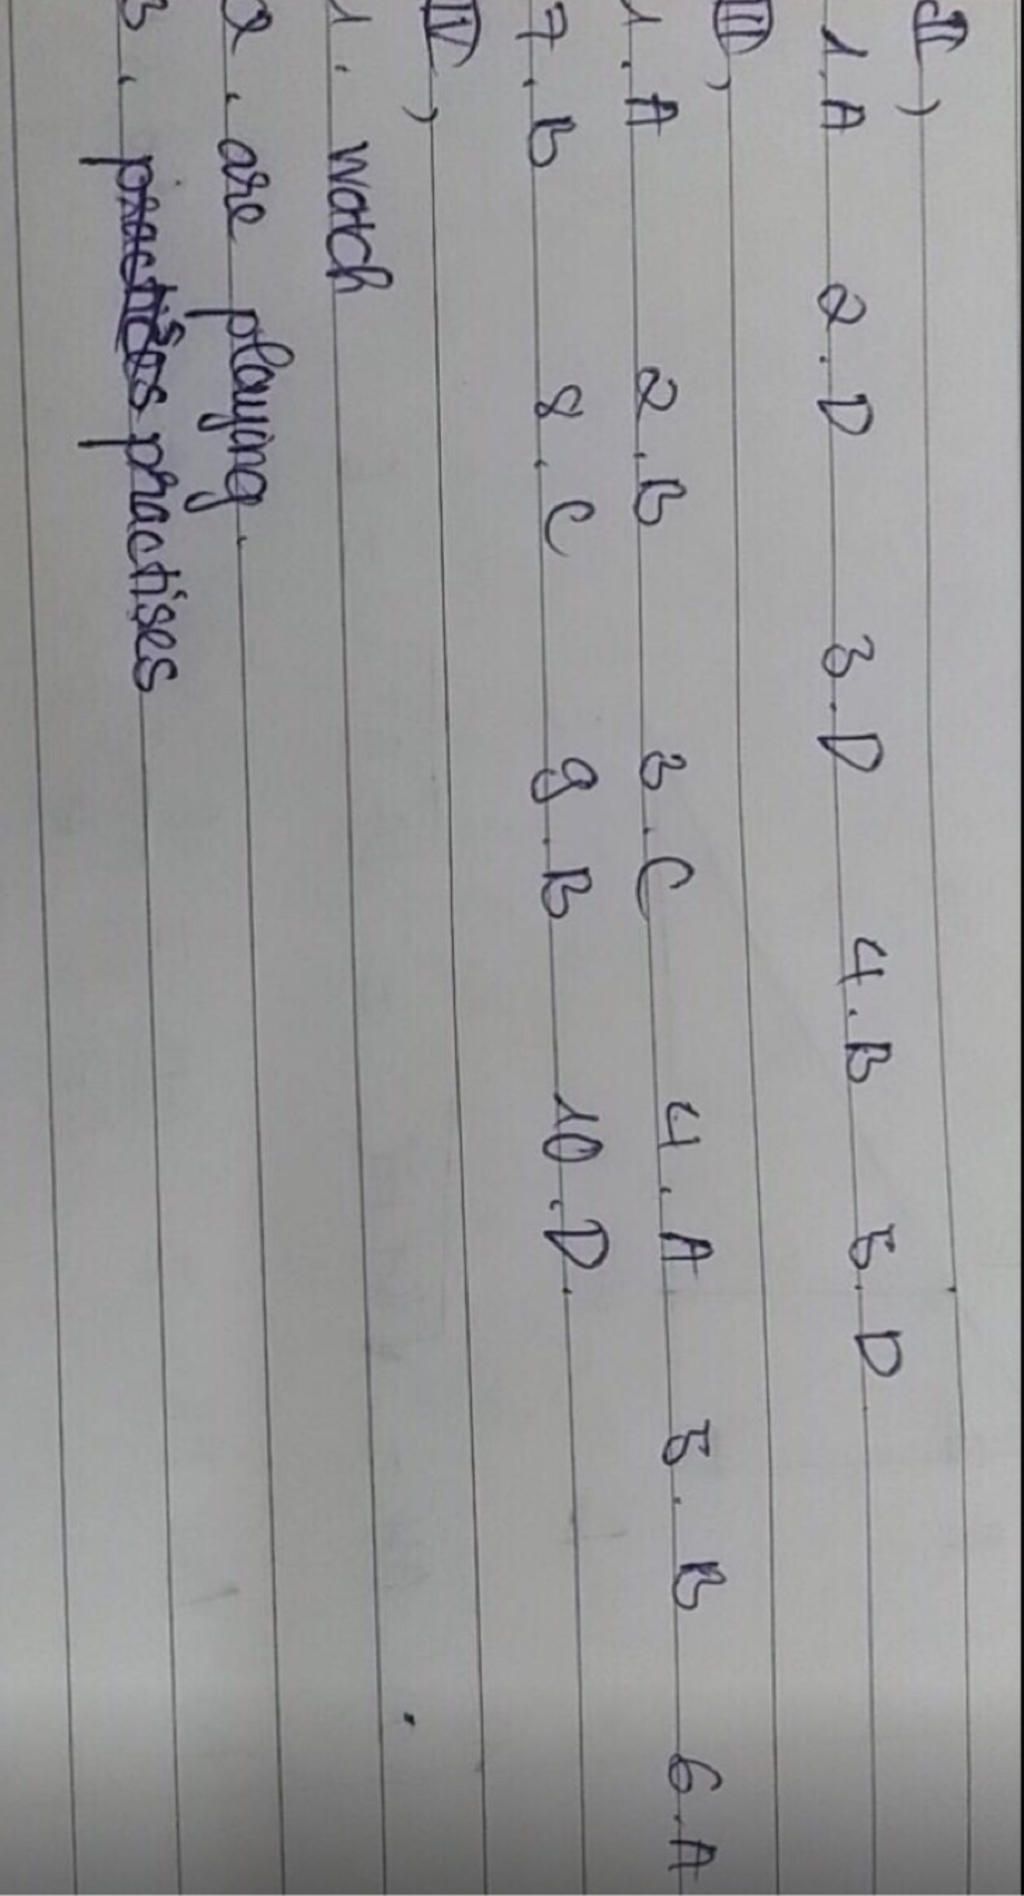 II)
1. A 2. D 3. D 4. B 5. D
III)
1. A 2. B 3. C 4. A 5. B 6. A
7. B 8. C 9. B 10. D.
IV)
1. watch
2. are playing.
3. practises